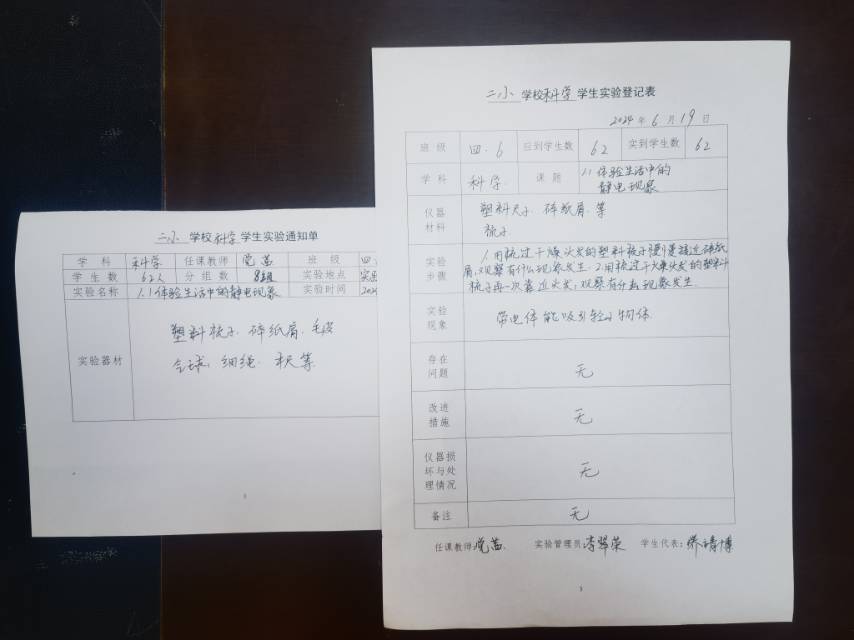 二小 学校科学学生实验通知单
学 科 科学 任课教师 党茜 班 级 四
学 生 数 62人 分 组 数 8组 实验地点 实
实验名称 1.1体验生活中的静电现象 实验时间 202
实验器材
塑料梳子、碎纸屑、毛皮
气球、细绳、木尺等
二小 学校科学学生实验登记表
2024 年 6 月 19 日
班 级 四.6 应到学生数 62 实到学生数 62
学 科 科学 课 题 1.1体验生活中的
静电现象
仪器 塑料尺子、碎纸屑、等
材料 梳子
实验 1.用梳过干燥头发的塑料梳子慢慢靠近碎纸
步骤 屑,观察有什么现象发生 2.用梳过干燥头发的塑料
梳子再一次靠近头发,观察有什么现象发生
实验
现象 带电体能吸引轻小物体
存在
问题 无
改进
措施 无
仪器损
坏与处 无
理情况
备注 无
任课教师党茜. 实验管理员李翠荣 学生代表:靖博